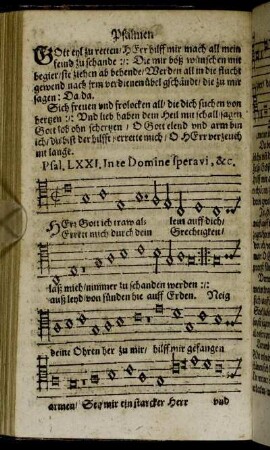 Psalmen
Gott eyl zu retten/ HErr hilff mir mach all mein
feind zu schande :/: Die mir böß wünschen mit
begier/ sie ziehen ab behende/ Werden all in die flucht
gewend nach jrm verdienen übel gschändt/ die zu mir
sagen: Da da.
Sich frewen und frolocken all/ die dich suchen von
hertzen :/: Und lieb haben dein Heil mit schall/ sagen
Gott sey ohn schertzen/ O Gott elend und arm bin
ich/ du bist der hilfft/ errette mich/ O HErr verzeuch
nit lange.
Psal. LXXI. In te Domine speravi, &c.
HErr Gott ich traw al lein auff dich/
Errett mich durch dein Grechtigkeit/
laß mich/ nimmer zu schanden werden :/:
auß leyd/ von sünden hie auff Erden. Neig
deine Ohren her zu mir/ hilff mir gefangen
armen/ Sey mir ein starcker Herr und